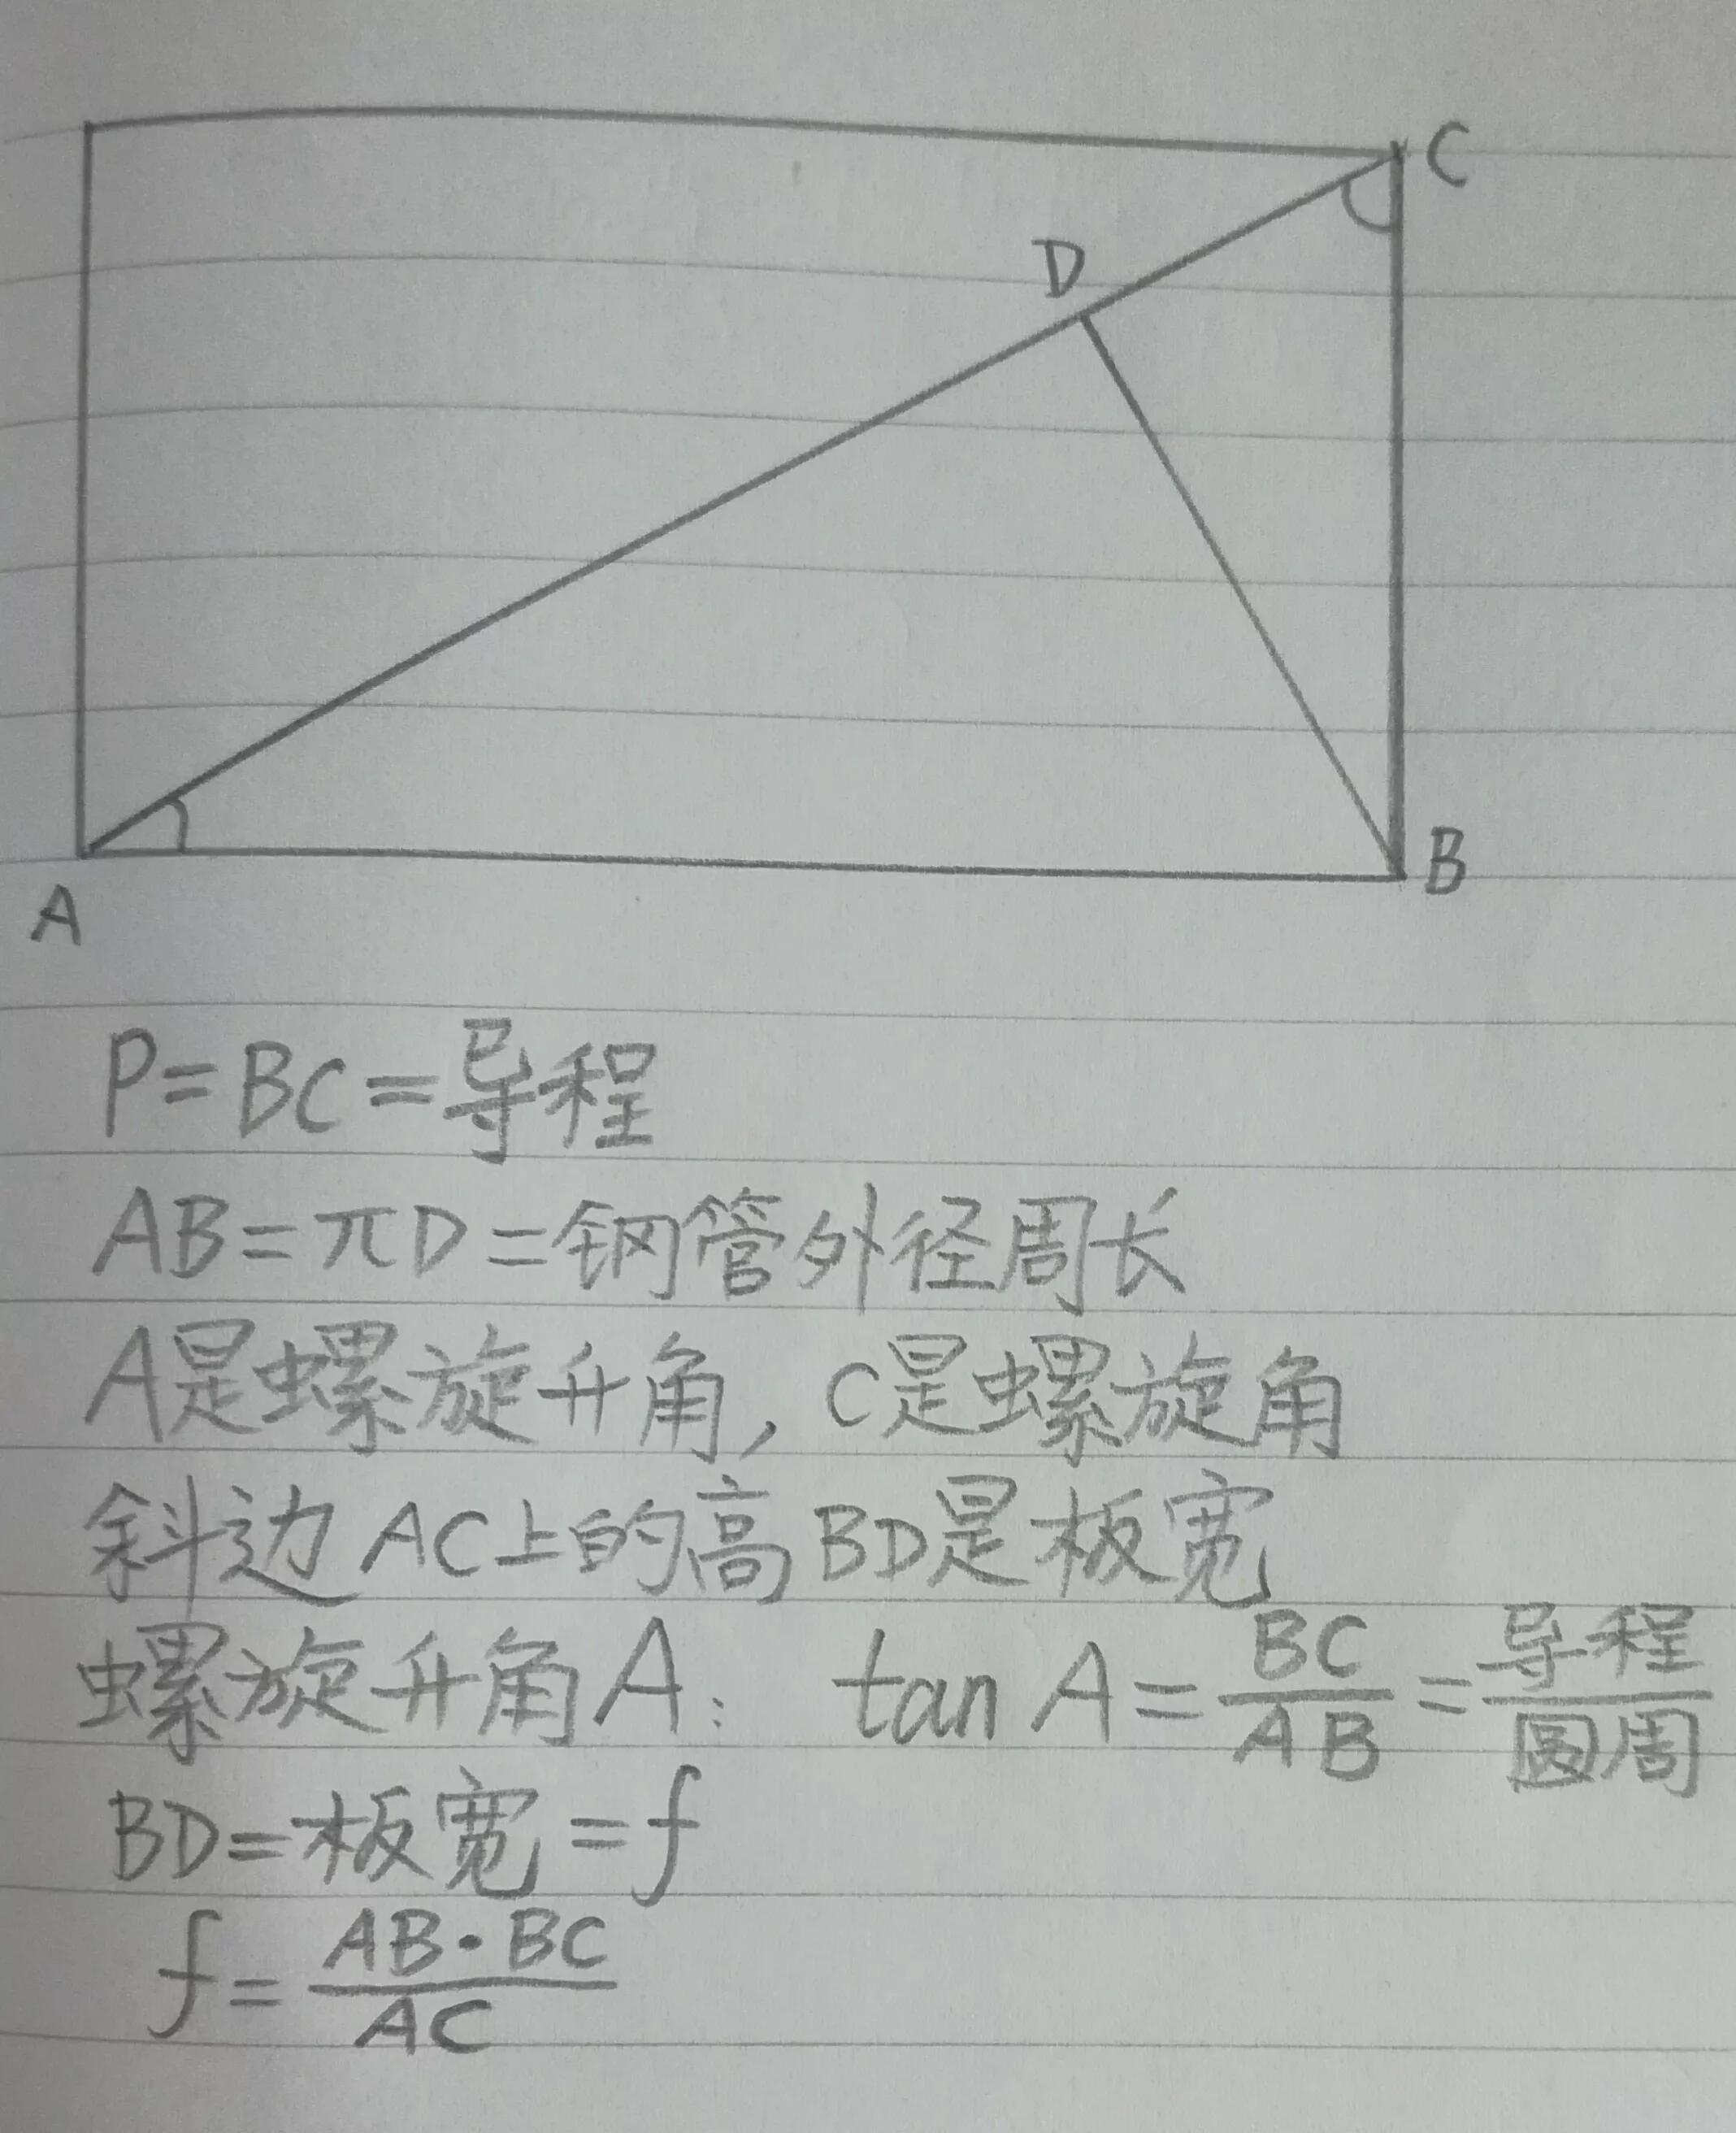 C
D
B
A
P=BC=导程
AB=πD=钢管外径周长
A是螺旋升角,C是螺旋角
斜边AC上的高BD是板宽
螺旋升角A: tan A=BC/AB=导程/圆周
BD=板宽=f
f=AB·BC/AC